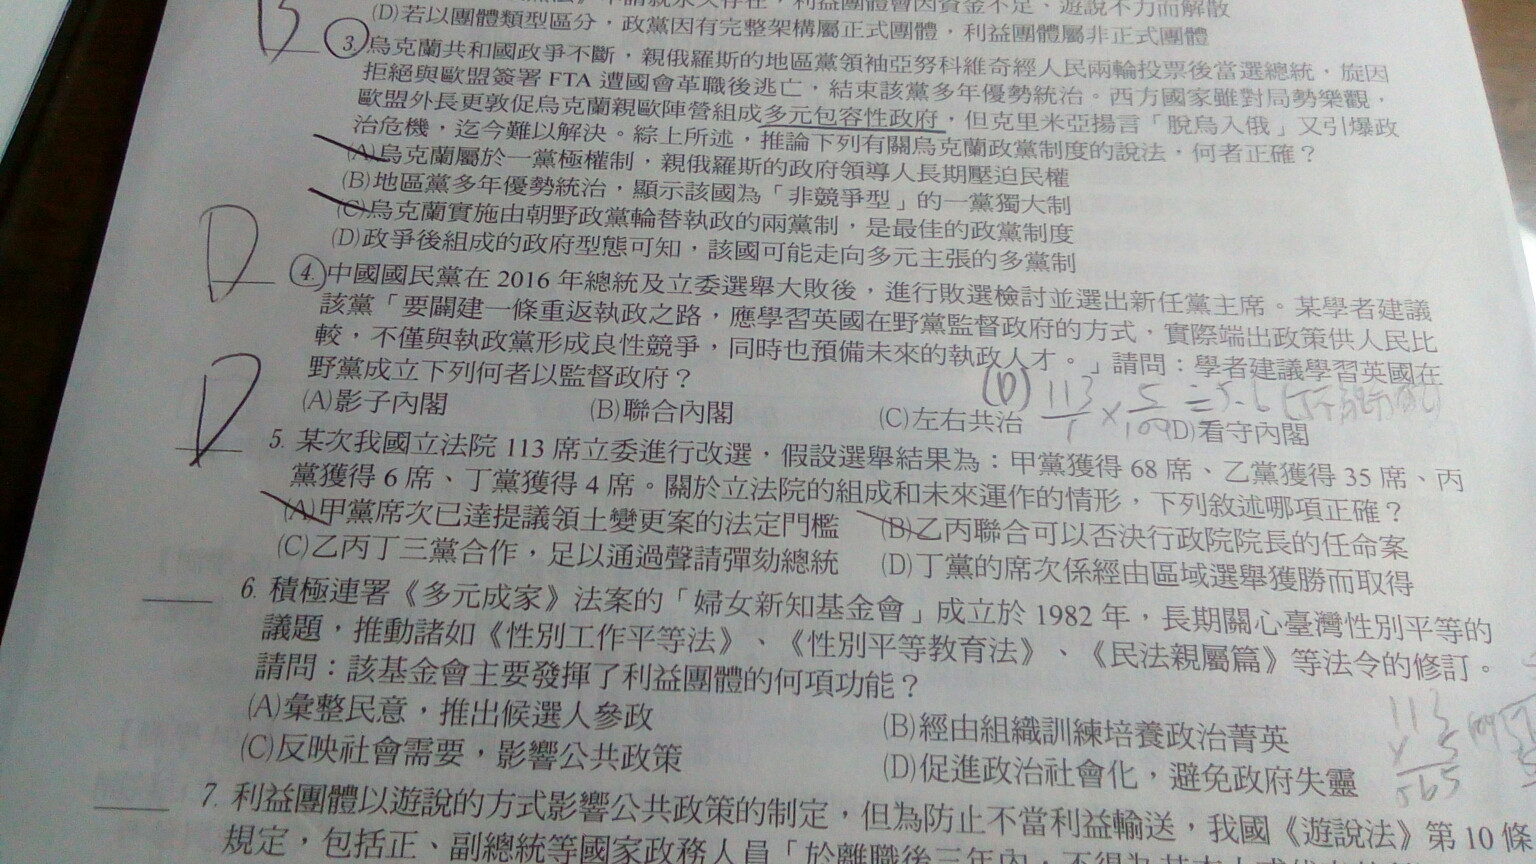 利益團體會因資金不足、遊說不力而解散
(D)若以團體類型區分，政黨因有完整架構屬正式團體，利益團體屬非正式團體
B
3. 烏克蘭共和國政爭不斷，親俄羅斯的地區黨領袖亞努科維奇經人民兩輪投票後當選總統，旋因
拒絕與歐盟簽署 FTA 遭國會革職後逃亡，結束該黨多年優勢統治。西方國家雖對局勢樂觀，
歐盟外長更敦促烏克蘭親歐陣營組成多元包容性政府，但克里米亞揚言「脫烏入俄」又引爆政
治危機，迄今難以解決。綜上所述，推論下列有關烏克蘭政黨制度的說法，何者正確？
(A)烏克蘭屬於一黨極權制，親俄羅斯的政府領導人長期壓迫民權
(B)地區黨多年優勢統治，顯示該國為「非競爭型」的一黨獨大制
(C)烏克蘭實施由朝野政黨輪替執政的兩黨制，是最佳的政黨制度
(D)政爭後組成的政府型態可知，該國可能走向多元主張的多黨制
D
4. 中國國民黨在 2016 年總統及立委選舉大敗後，進行敗選檢討並選出新任黨主席。某學者建議
該黨「要闢建一條重返執政之路，應學習英國在野黨監督政府的方式，實際端出政策供人民比
較，不僅與執政黨形成良性競爭，同時也預備未來的執政人才。」請問：學者建議學習英國在
野黨成立下列何者以監督政府？
(D) 113/1 × 5/109 = 5.6
(A)影子內閣 (B)聯合內閣 (C)左右共治 (D)看守內閣
D
5. 某次我國立法院 113 席立委進行改選，假設選舉結果為：甲黨獲得 68 席、乙黨獲得 35 席、丙
黨獲得 6 席、丁黨獲得 4 席。關於立法院的組成和未來運作的情形，下列敘述哪項正確？
(A)甲黨席次已達提議領土變更案的法定門檻 (B)乙丙聯合可以否決行政院院長的任命案
(C)乙丙丁三黨合作，足以通過聲請彈劾總統 (D)丁黨的席次係經由區域選舉獲勝而取得
6. 積極連署《多元成家》法案的「婦女新知基金會」成立於 1982 年，長期關心臺灣性別平等的
議題，推動諸如《性別工作平等法》、《性別平等教育法》、《民法親屬篇》等法令的修訂。
請問：該基金會主要發揮了利益團體的何項功能？
(A)彙整民意，推出候選人參政 (B)經由組織訓練培養政治菁英
(C)反映社會需要，影響公共政策 (D)促進政治社會化，避免政府失靈
113
× 5
565
7. 利益團體以遊說的方式影響公共政策的制定，但為防止不當利益輸送，我國《遊說法》第 10 條
規定，包括正、副總統等國家政務人員「於離職後三年內，不得為其本人或